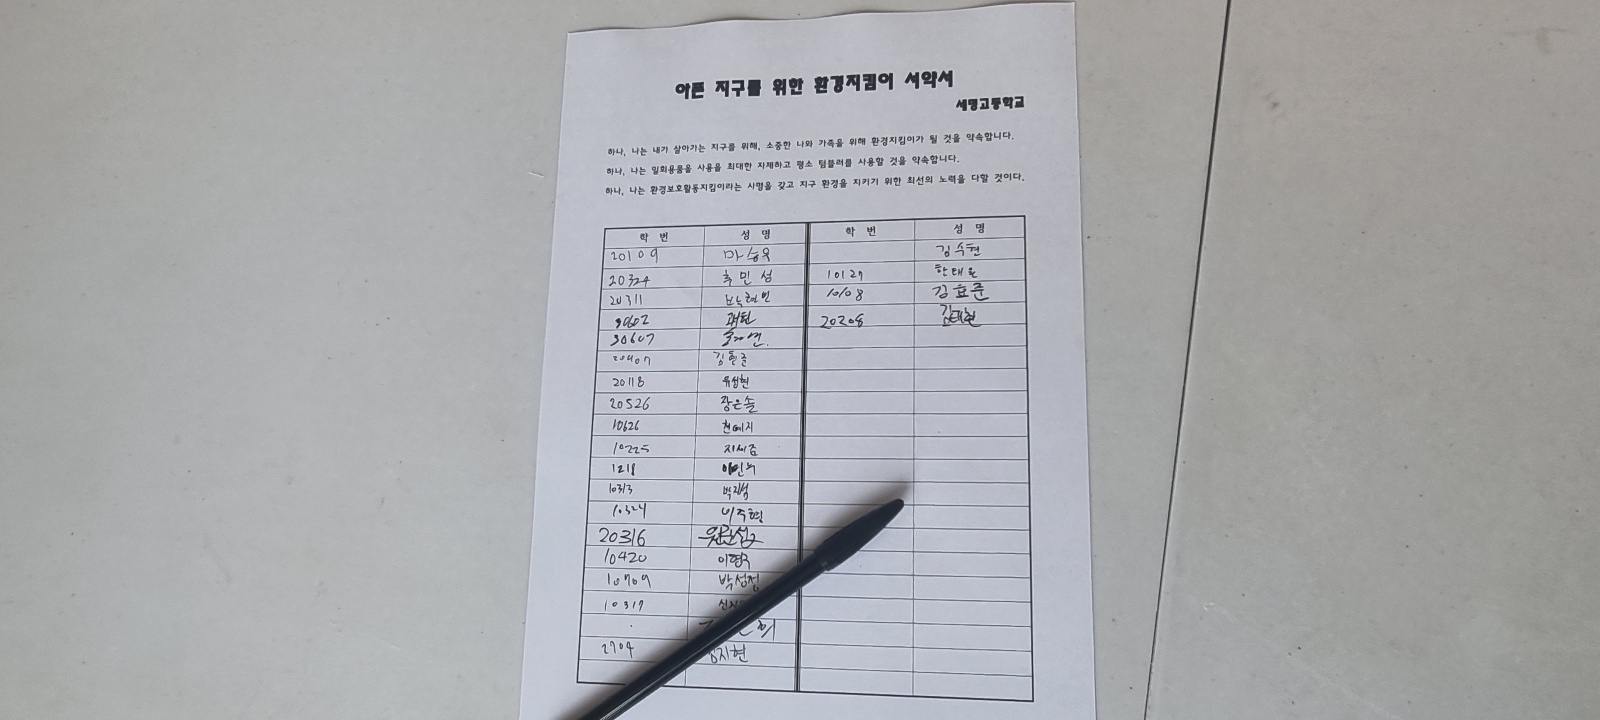 아픈 지구를 위한 환경지킴이 서약서
세명고등학교
하나, 나는 내가 살아가는 지구를 위해, 소중한 나와 가족을 위해 환경지킴이가 될 것을 약속합니다.
하나, 나는 일회용품을 사용을 최대한 자제하고 평소 텀블러를 사용할 것을 약속합니다.
하나, 나는 환경보호활동지킴이라는 사명을 갖고 지구 환경을 지키기 위한 최선의 노력을 다할 것이다.
학 번 성 명 학 번 성 명
20109 마승욱 김수현
20324 추민성 10127 한태원
20311 10108 김효준
30602 20208 김태현
30607
20407
20118 유성현
20526 장은솔
10626 현예지
10225 지세준
1218
10313 박지성
10324 이주형
20316
10420
10709 박성정
10317
2704 지현